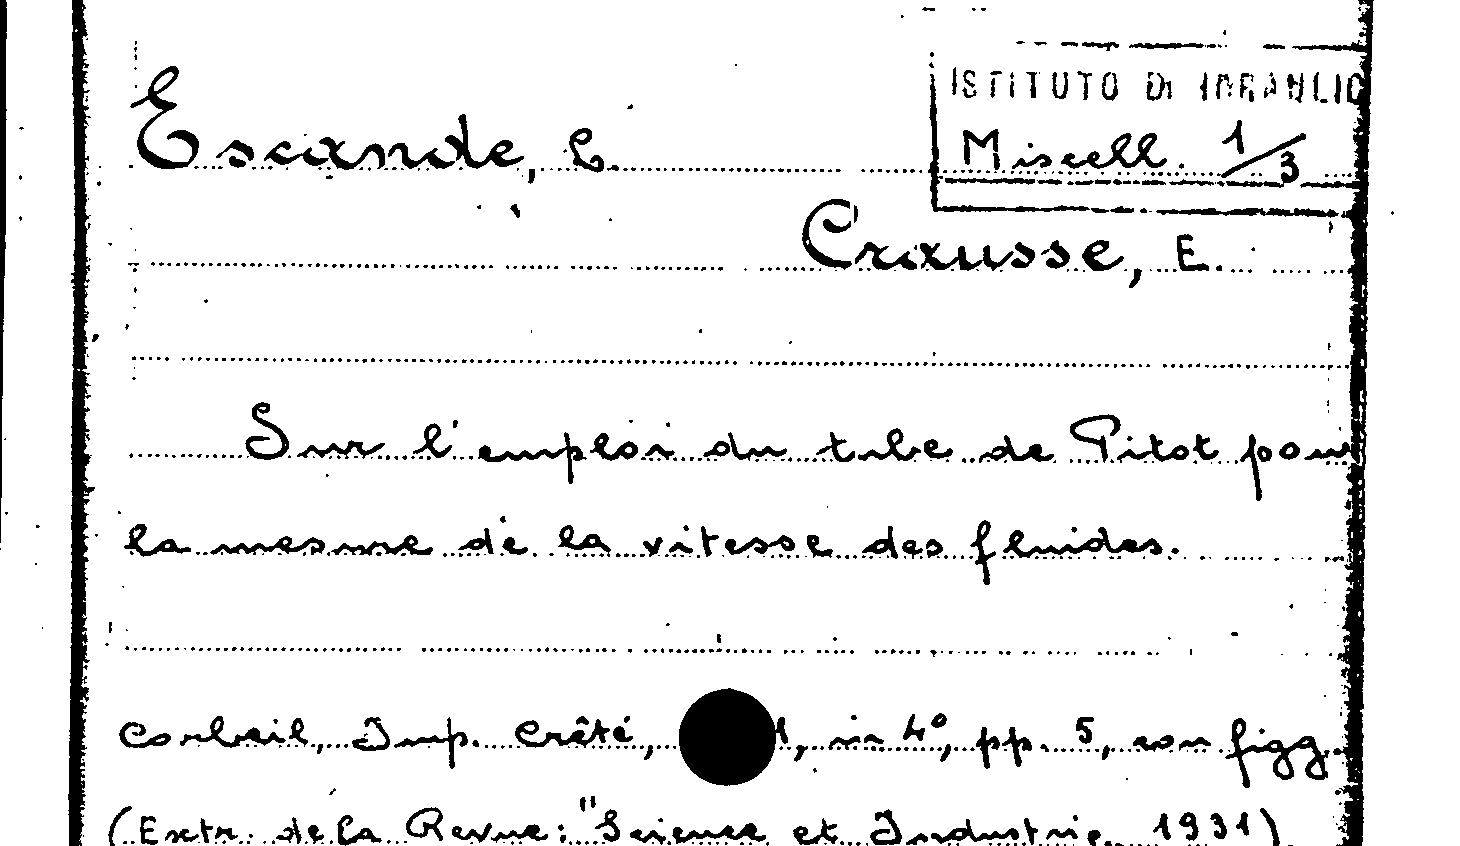 ISTITUTO DI IDRAULIC
Escande, L.
Miscell. 1/3
Crausse, E.
Sur l'emploi du tube de Pitot pour
la mesure de la vitesse des fluides.
Corbeil, Imp. Crêté, 1, in 4°, pp. 5, con figg.
(Extr. de la Revue: "Science et Industrie, 1931)